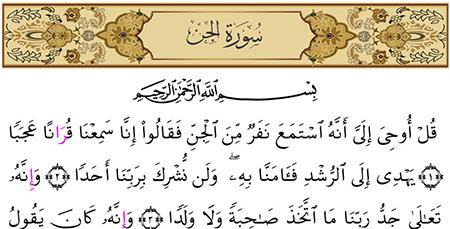 سُورَةُ الجِنّ
بِسْمِ اللَّهِ الرَّحْمَٰنِ الرَّحِيمِ
قُلْ أُوحِىَ إِلَىَّ أَنَّهُ ٱسْتَمَعَ نَفَرٌ مِّنَ ٱلْجِنِّ فَقَالُوا۟ إِنَّا سَمِعْنَا قُرَانًا عَجَبًا
﴿١﴾ يَهْدِى إِلَى ٱلرُّشْدِ فَـَٔامَنَّا بِهِۦ ۖ وَلَن نُّشْرِكَ بِرَبِّنَا أَحَدًا ﴿٢﴾ وَإِنَّهُۥ
تَعَالَىٰ جَدُّ رَبِّنَا مَا ٱتَّخَذَ صَـٰحِبَةً وَلَا وَلَدًا ﴿٣﴾ وَإِنَّهُۥ كَانَ يَقُولُ